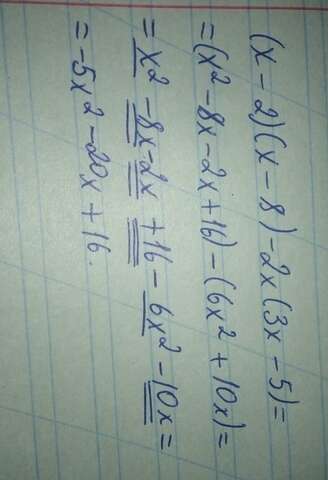 (x - 2)(x - 8) - 2x(3x - 5) =
= (x² - 8x - 2x + 16) - (6x² + 10x) =
= x² - 8x - 2x + 16 - 6x² - 10x =
= -5x² - 20x + 16.